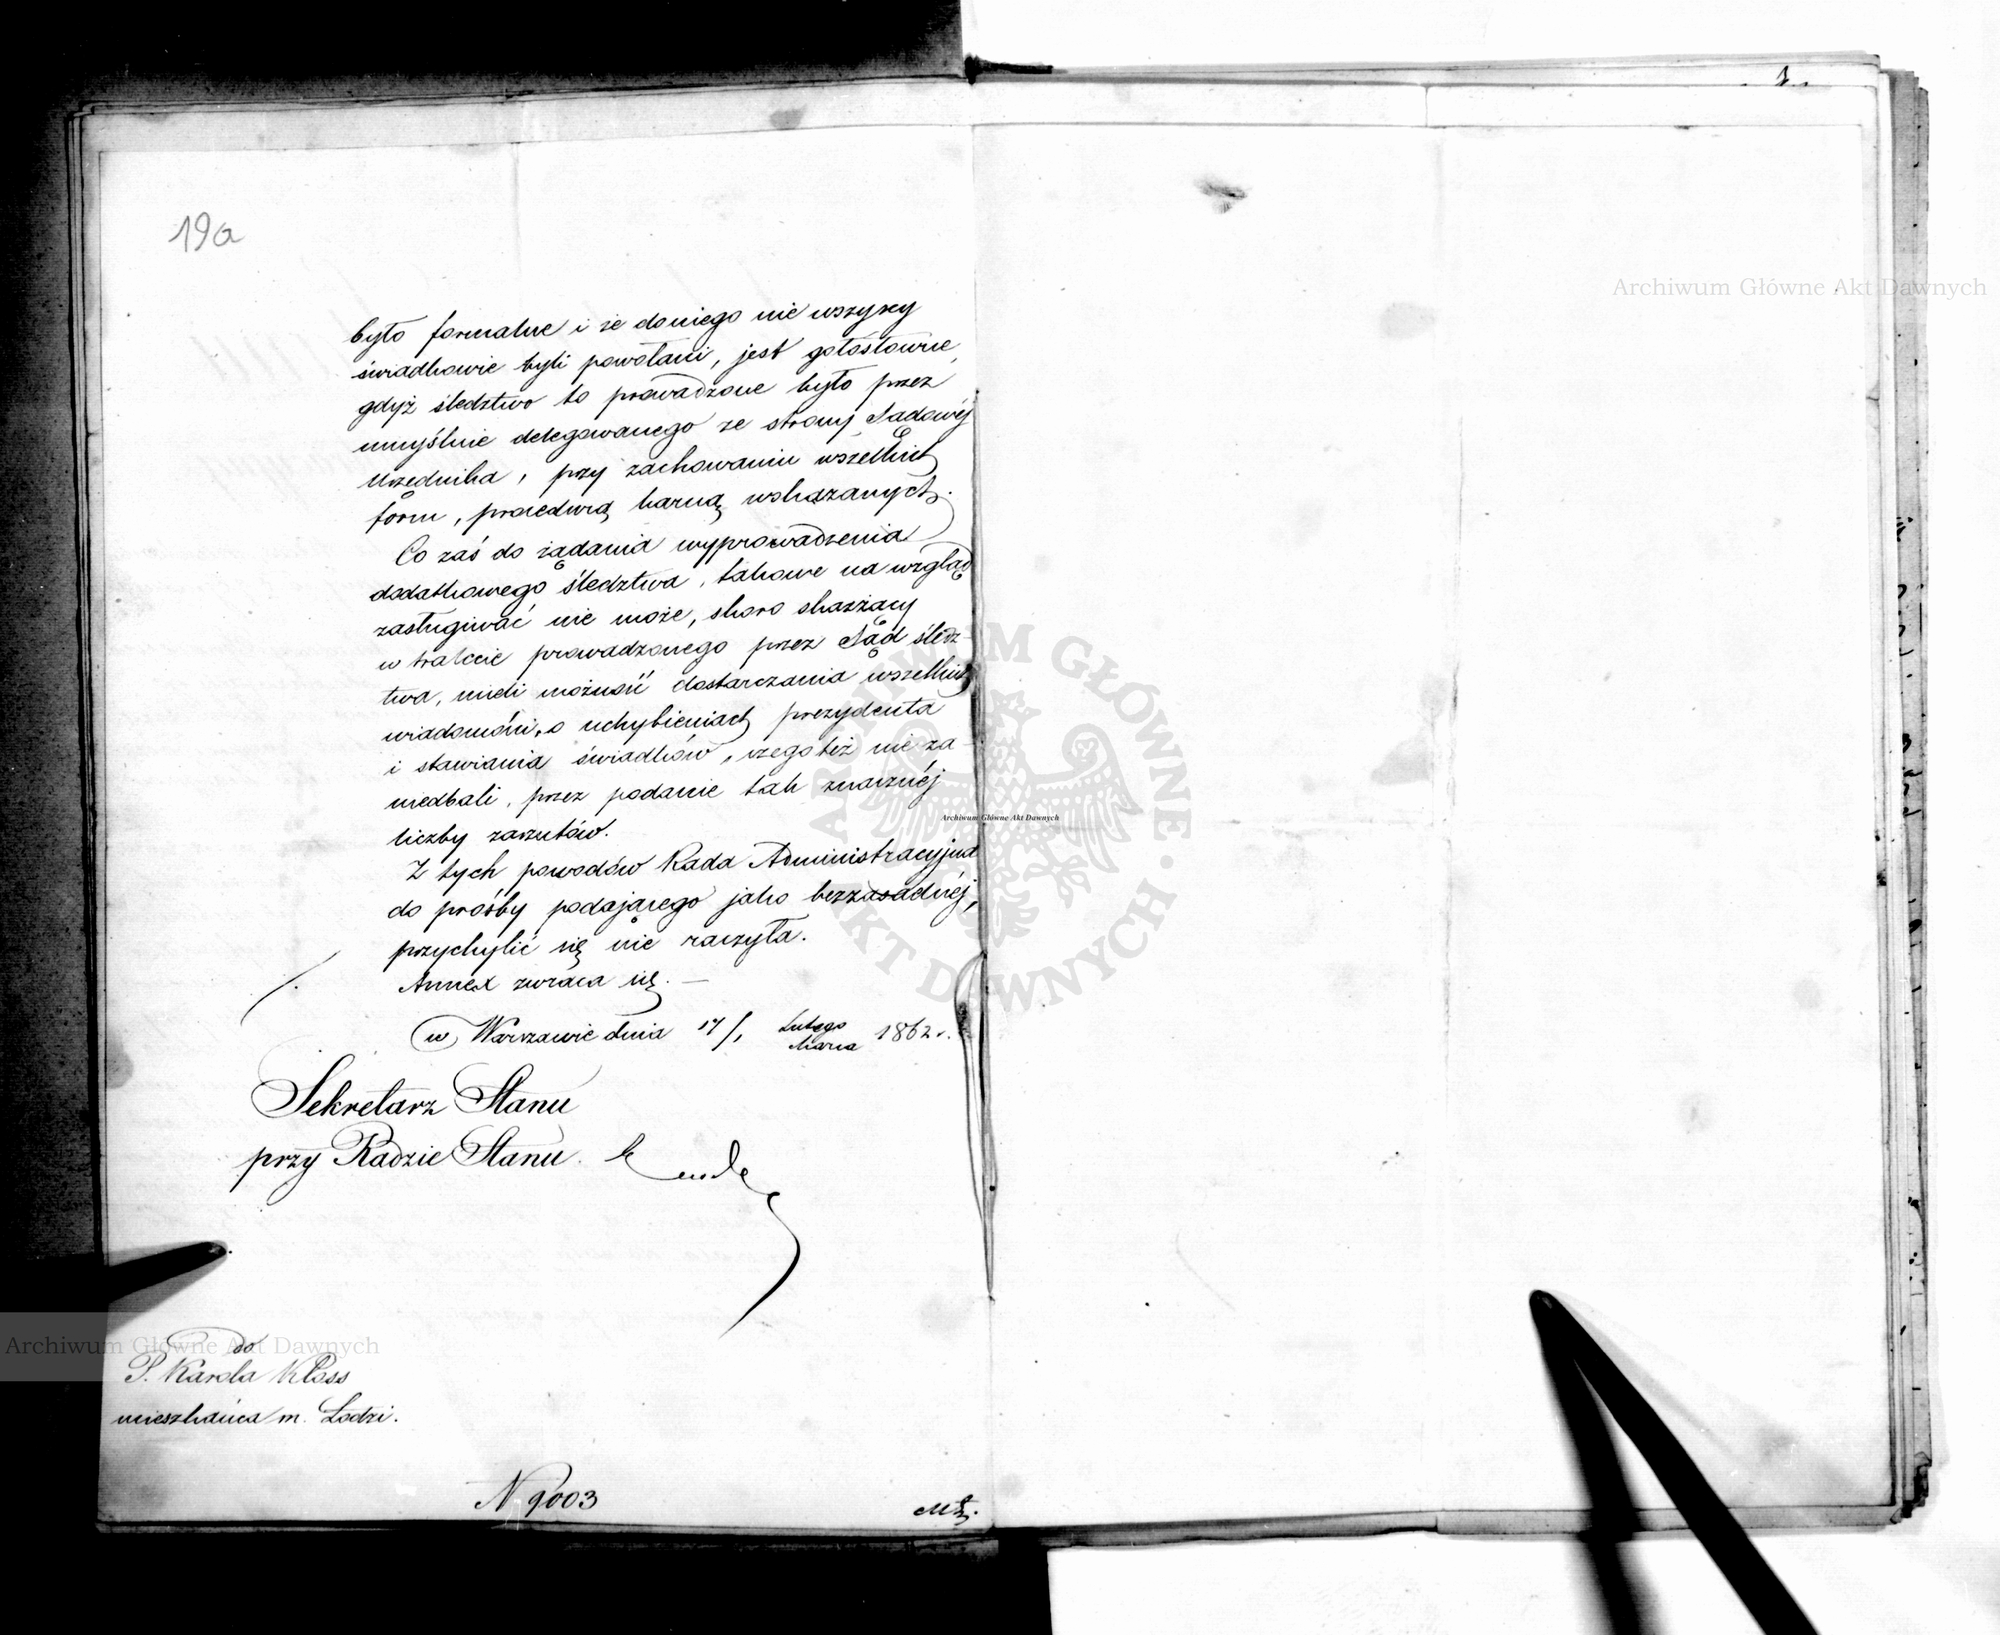 19a
było formalne i że doniego nie wszyscy
świadkowie byli powołani, jest gołosłowne,
gdyż śledztwo to prowadzone było przez
umyślnie delegowanego ze strony Sądowéj
Urzędnika, przy zachowaniu wszelkich
form, procedurą karną wskazanych.
Co zaś do żądania wyprowadzenia
dodatkowego śledztwa, takowe na wzgląd
zasługiwać nie może, skoro skarżący
w trakcie prowadzonego przez Sąd śledz-
twa, mieli możność dostarczania wszelkich
wiadomości, o uchybieniach prezydenta
i stawiania świadków, czego też nie za-
niedbali, przez podanie tak znacznéj
liczby zarzutów.
Z tych powodów Rada Administracyjna
do prośby podającego jako bezzasadnéj,
przychylić się nie raczyła.
Annex zwraca się. —
w Warszawie dnia 17/1 Lutego
Marca 1862 r.
Sekretarz Stanu
przy Radzie Stanu.
do
P. Karola Kloss
mieszkańca m. Łodzi.
N 9003
Archiwum Główne Akt Dawnych
Archiwum Główne Akt Dawnych
Archiwum Główne Akt Dawnych
ARCHIWUM GŁÓWNE AKT DAWNYCH